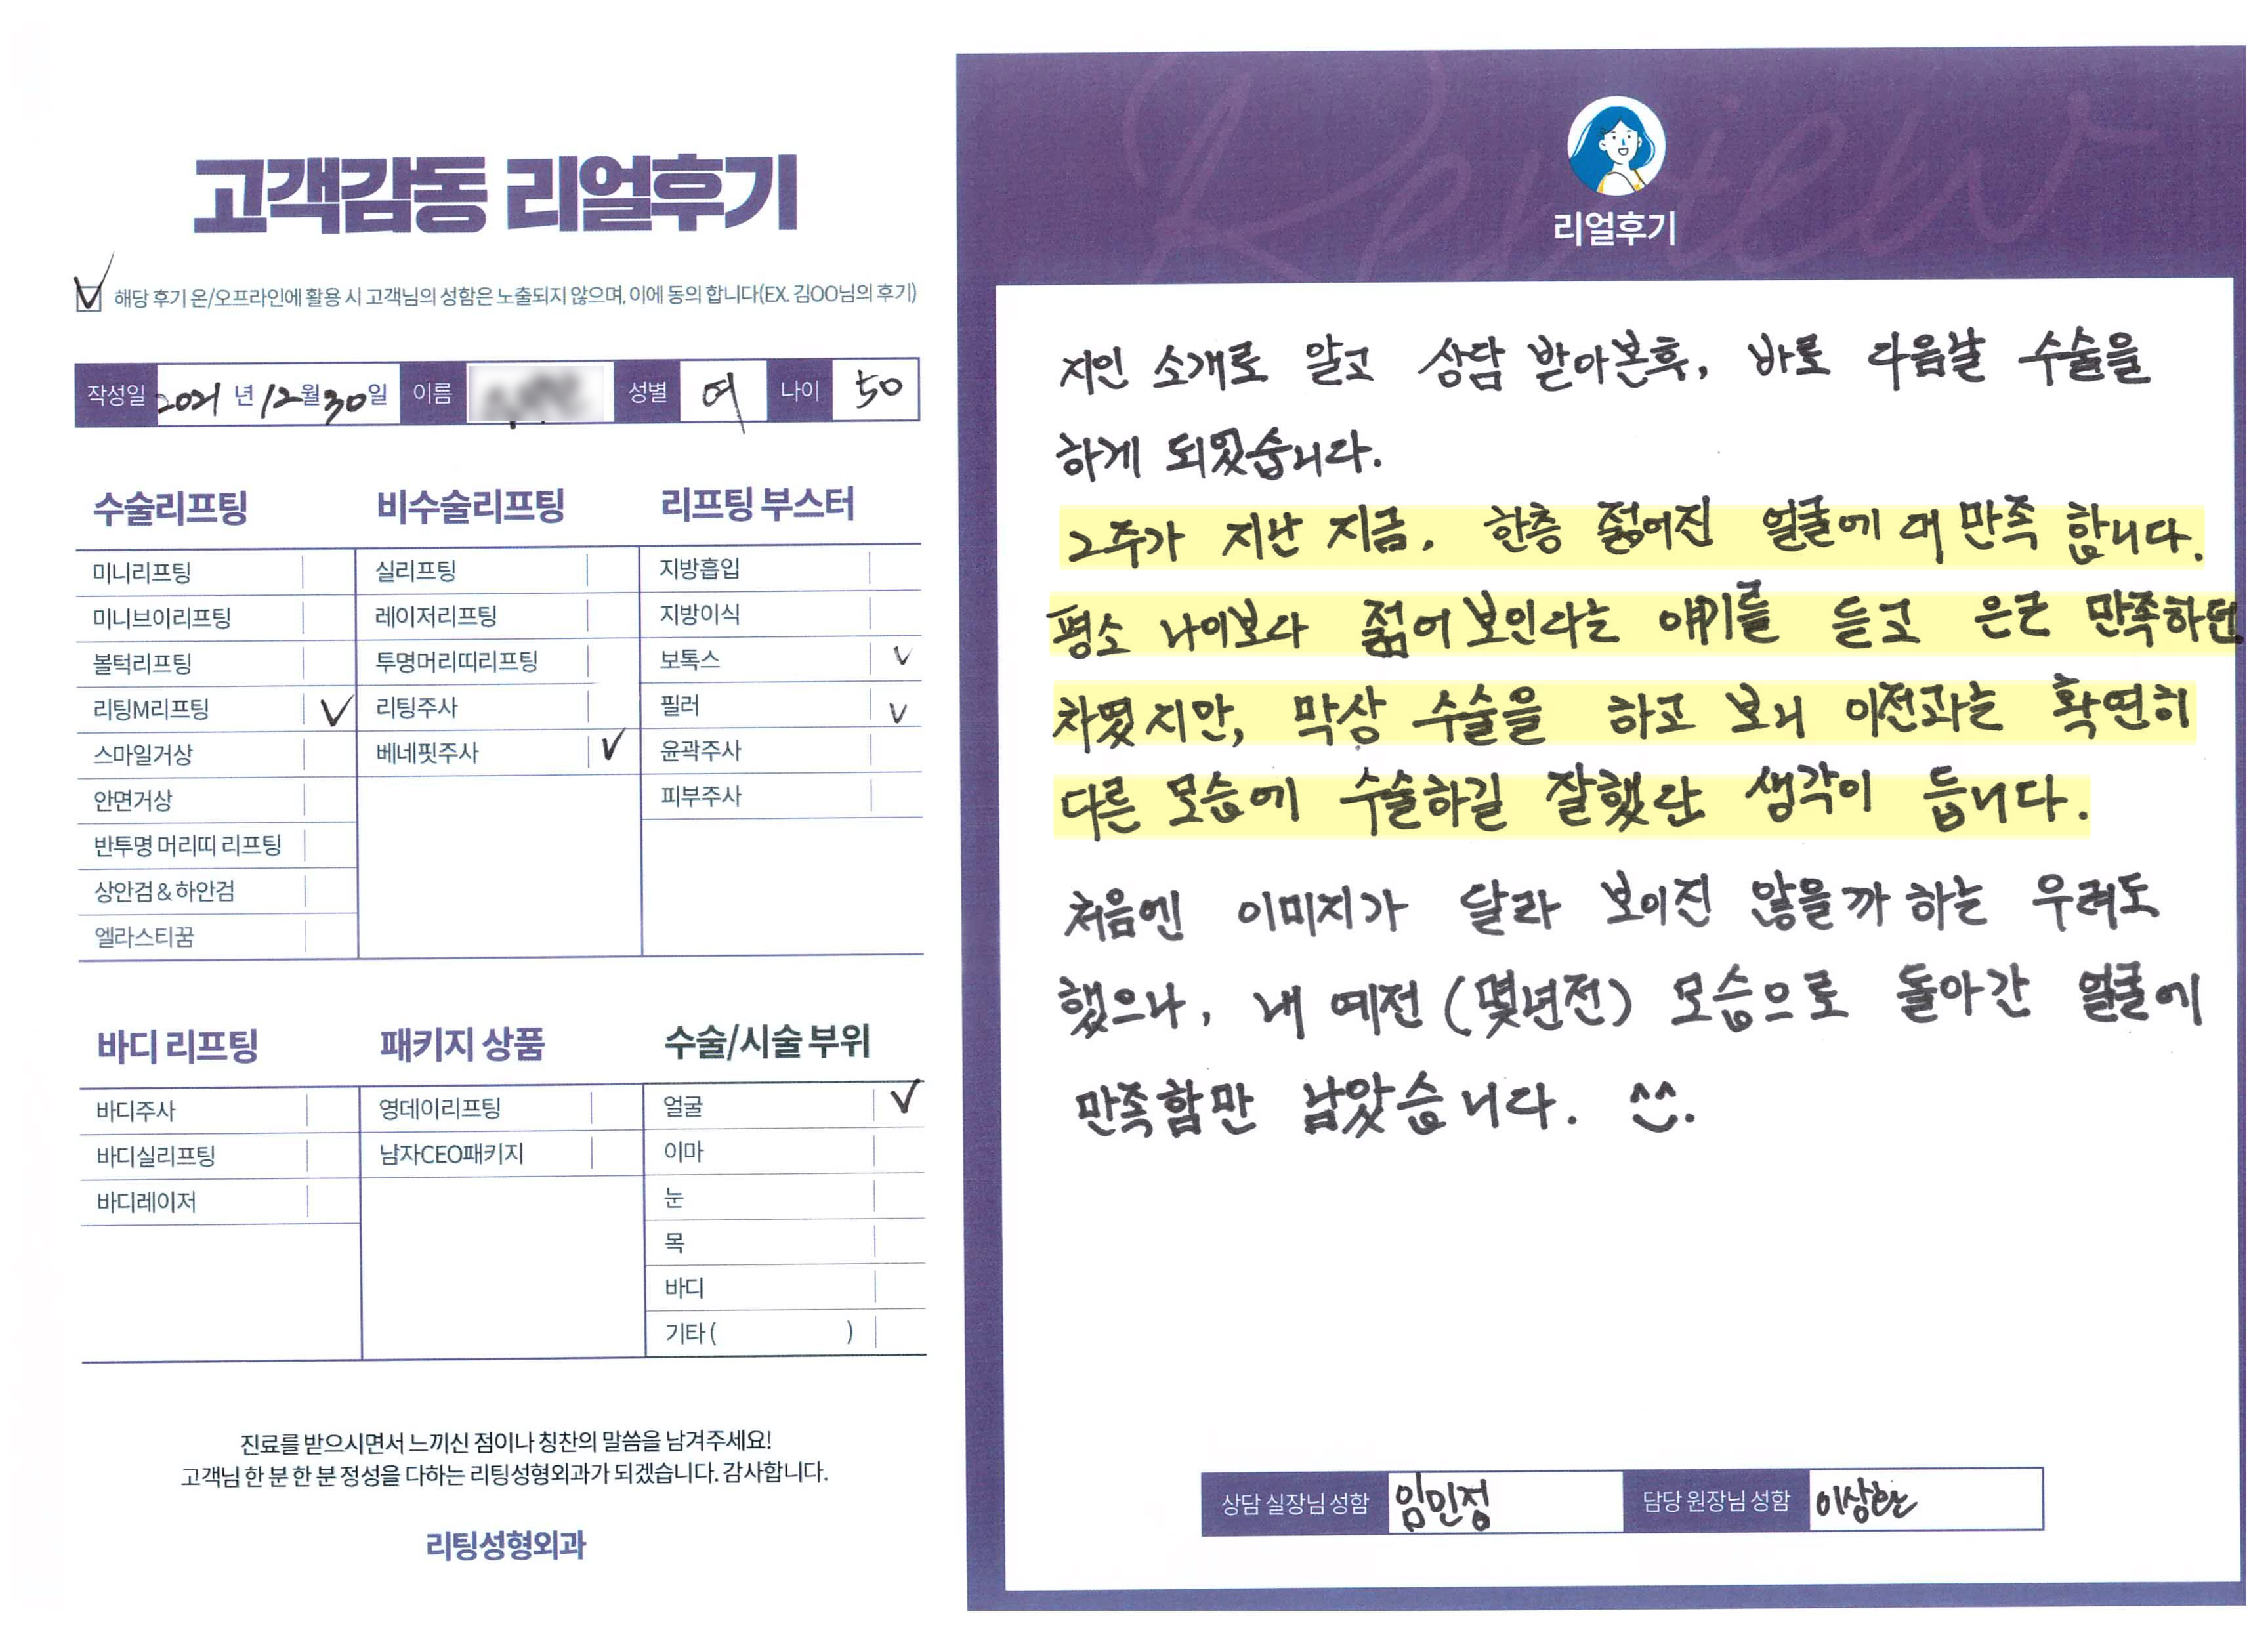 고객감동 리얼후기
해당 후기 온/오프라인에 활용 시 고객님의 성함은 노출되지 않으며, 이에 동의 합니다(EX. 김OO님의 후기)
작성일 2021 년 12 월 30 일 이름 성별 여 나이 50
수술리프팅
미니리프팅
미니브이리프팅
볼턱리프팅
리팅M리프팅
스마일거상
안면거상
반투명 머리띠 리프팅
상안검 & 하안검
엘라스티꿈
비수술리프팅
실리프팅
레이저리프팅
투명머리띠리프팅
리팅주사
베네핏주사
리프팅 부스터
지방흡입
지방이식
보톡스
필러
윤곽주사
피부주사
바디 리프팅
바디주사
바디실리프팅
바디레이저
패키지 상품
영데이리프팅
남자CEO패키지
수술/시술 부위
얼굴
이마
눈
목
바디
기타 ( )
진료를 받으시면서 느끼신 점이나 칭찬의 말씀을 남겨주세요!
고객님 한 분 한 분 정성을 다하는 리팅성형외과가 되겠습니다. 감사합니다.
리팅성형외과
Review
리얼후기
지인 소개로 알고 상담 받아본후, 바로 다음날 수술을
하게 되었습니다.
2주가 지난 지금, 한층 젊어진 얼굴에 대만족 합니다.
평소 나이보다 젊어보인다는 얘기를 듣고 은근 만족하던
차였지만, 막상 수술을 하고 보니 이전과는 확연히
다른 모습에 수술하길 잘했단 생각이 듭니다.
처음엔 이미지가 달라 보이진 않을까 하는 우려도
했으나, 내 예전 (몇년전) 모습으로 돌아간 얼굴에
만족함만 남았습니다. ^^.
상담 실장님 성함 임민정 담당 원장님 성함 이상환